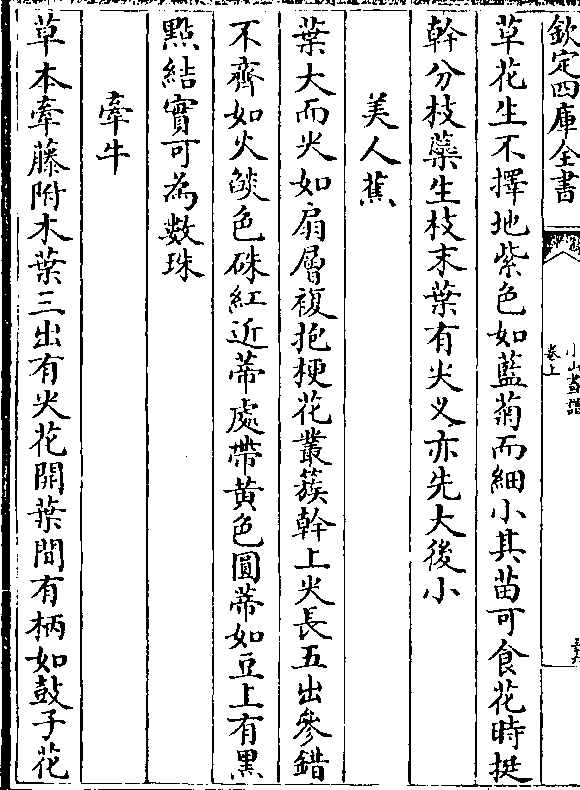 欽定四庫全書
小山畫譜
卷上
草花生不擇地紫色如藍菊而細小其苗可食花時挺
幹分枝蘂生枝末葉有尖义亦先大後小
美人蕉
葉大而尖如扇層複抱梗花叢簇幹上尖長五出參錯
不齊如火燄色硃紅近蒂處帶黄色圓蒂如豆上有黒
㸃結實可為數珠
牽牛
草本牽藤附木葉三出有尖花開葉間有柄如鼓子花